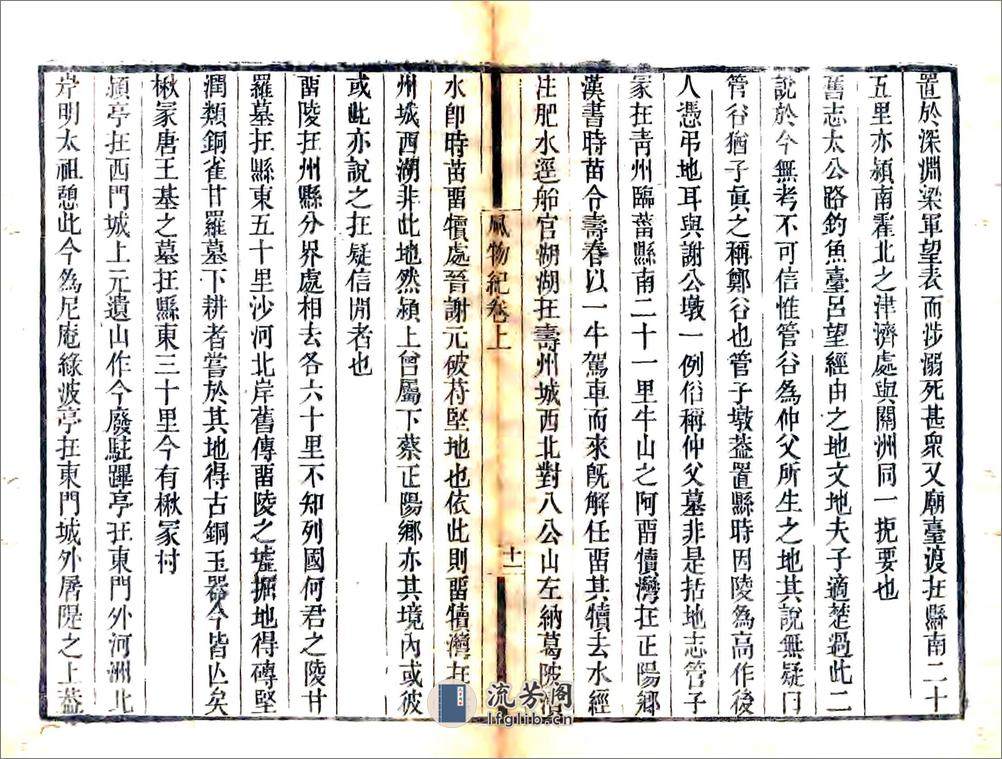 置於深淵梁軍望表而涉溺死甚衆又廟臺渡在縣南二十
五里亦潁南霍北之津濟處與關洲同一扼要也
舊志太公路釣魚臺呂望經由之地文地夫子適楚過此二
說於今無考不可信惟管谷爲仲父所生之地其說無疑曰
管谷猶子真之稱鄭谷也管子墩蓋置縣時因陵爲高作後
人憑弔地耳與謝公墩一例俗稱仲父墓非是括地志管子
冢在青州臨菑縣南二十一里牛山之阿畱犢灣在正陽鄉
漢書時苗令壽春以一牛駕車而來旣解任畱其犢去水經
注肥水逕船官湖湖在壽州城西北對八公山左納葛陂
風物紀卷上
十一
水卽時苗畱犢處晉謝元破苻堅地也依此則畱犢灣在
州城西湖非此地然潁上曾屬下蔡正陽鄉亦其境內或彼
或此亦說之在疑信閒者也
畱陵在州縣分界處相去各六十里不知列國何君之陵甘
羅墓在縣東五十里沙河北岸舊傳畱陵之墟掘地得磚堅
潤類銅雀甘羅墓下耕者嘗於其地得古銅玉器今皆亾矣
楸冢唐王基之墓在縣東三十里今有楸冢村
潁亭在西門城上元遺山作今廢駐蹕亭在東門外河洲北
岸明太祖憩此今為尼庵緣波亭在東門城外屠隄之上蓋
流芳閣
lfglib.cn